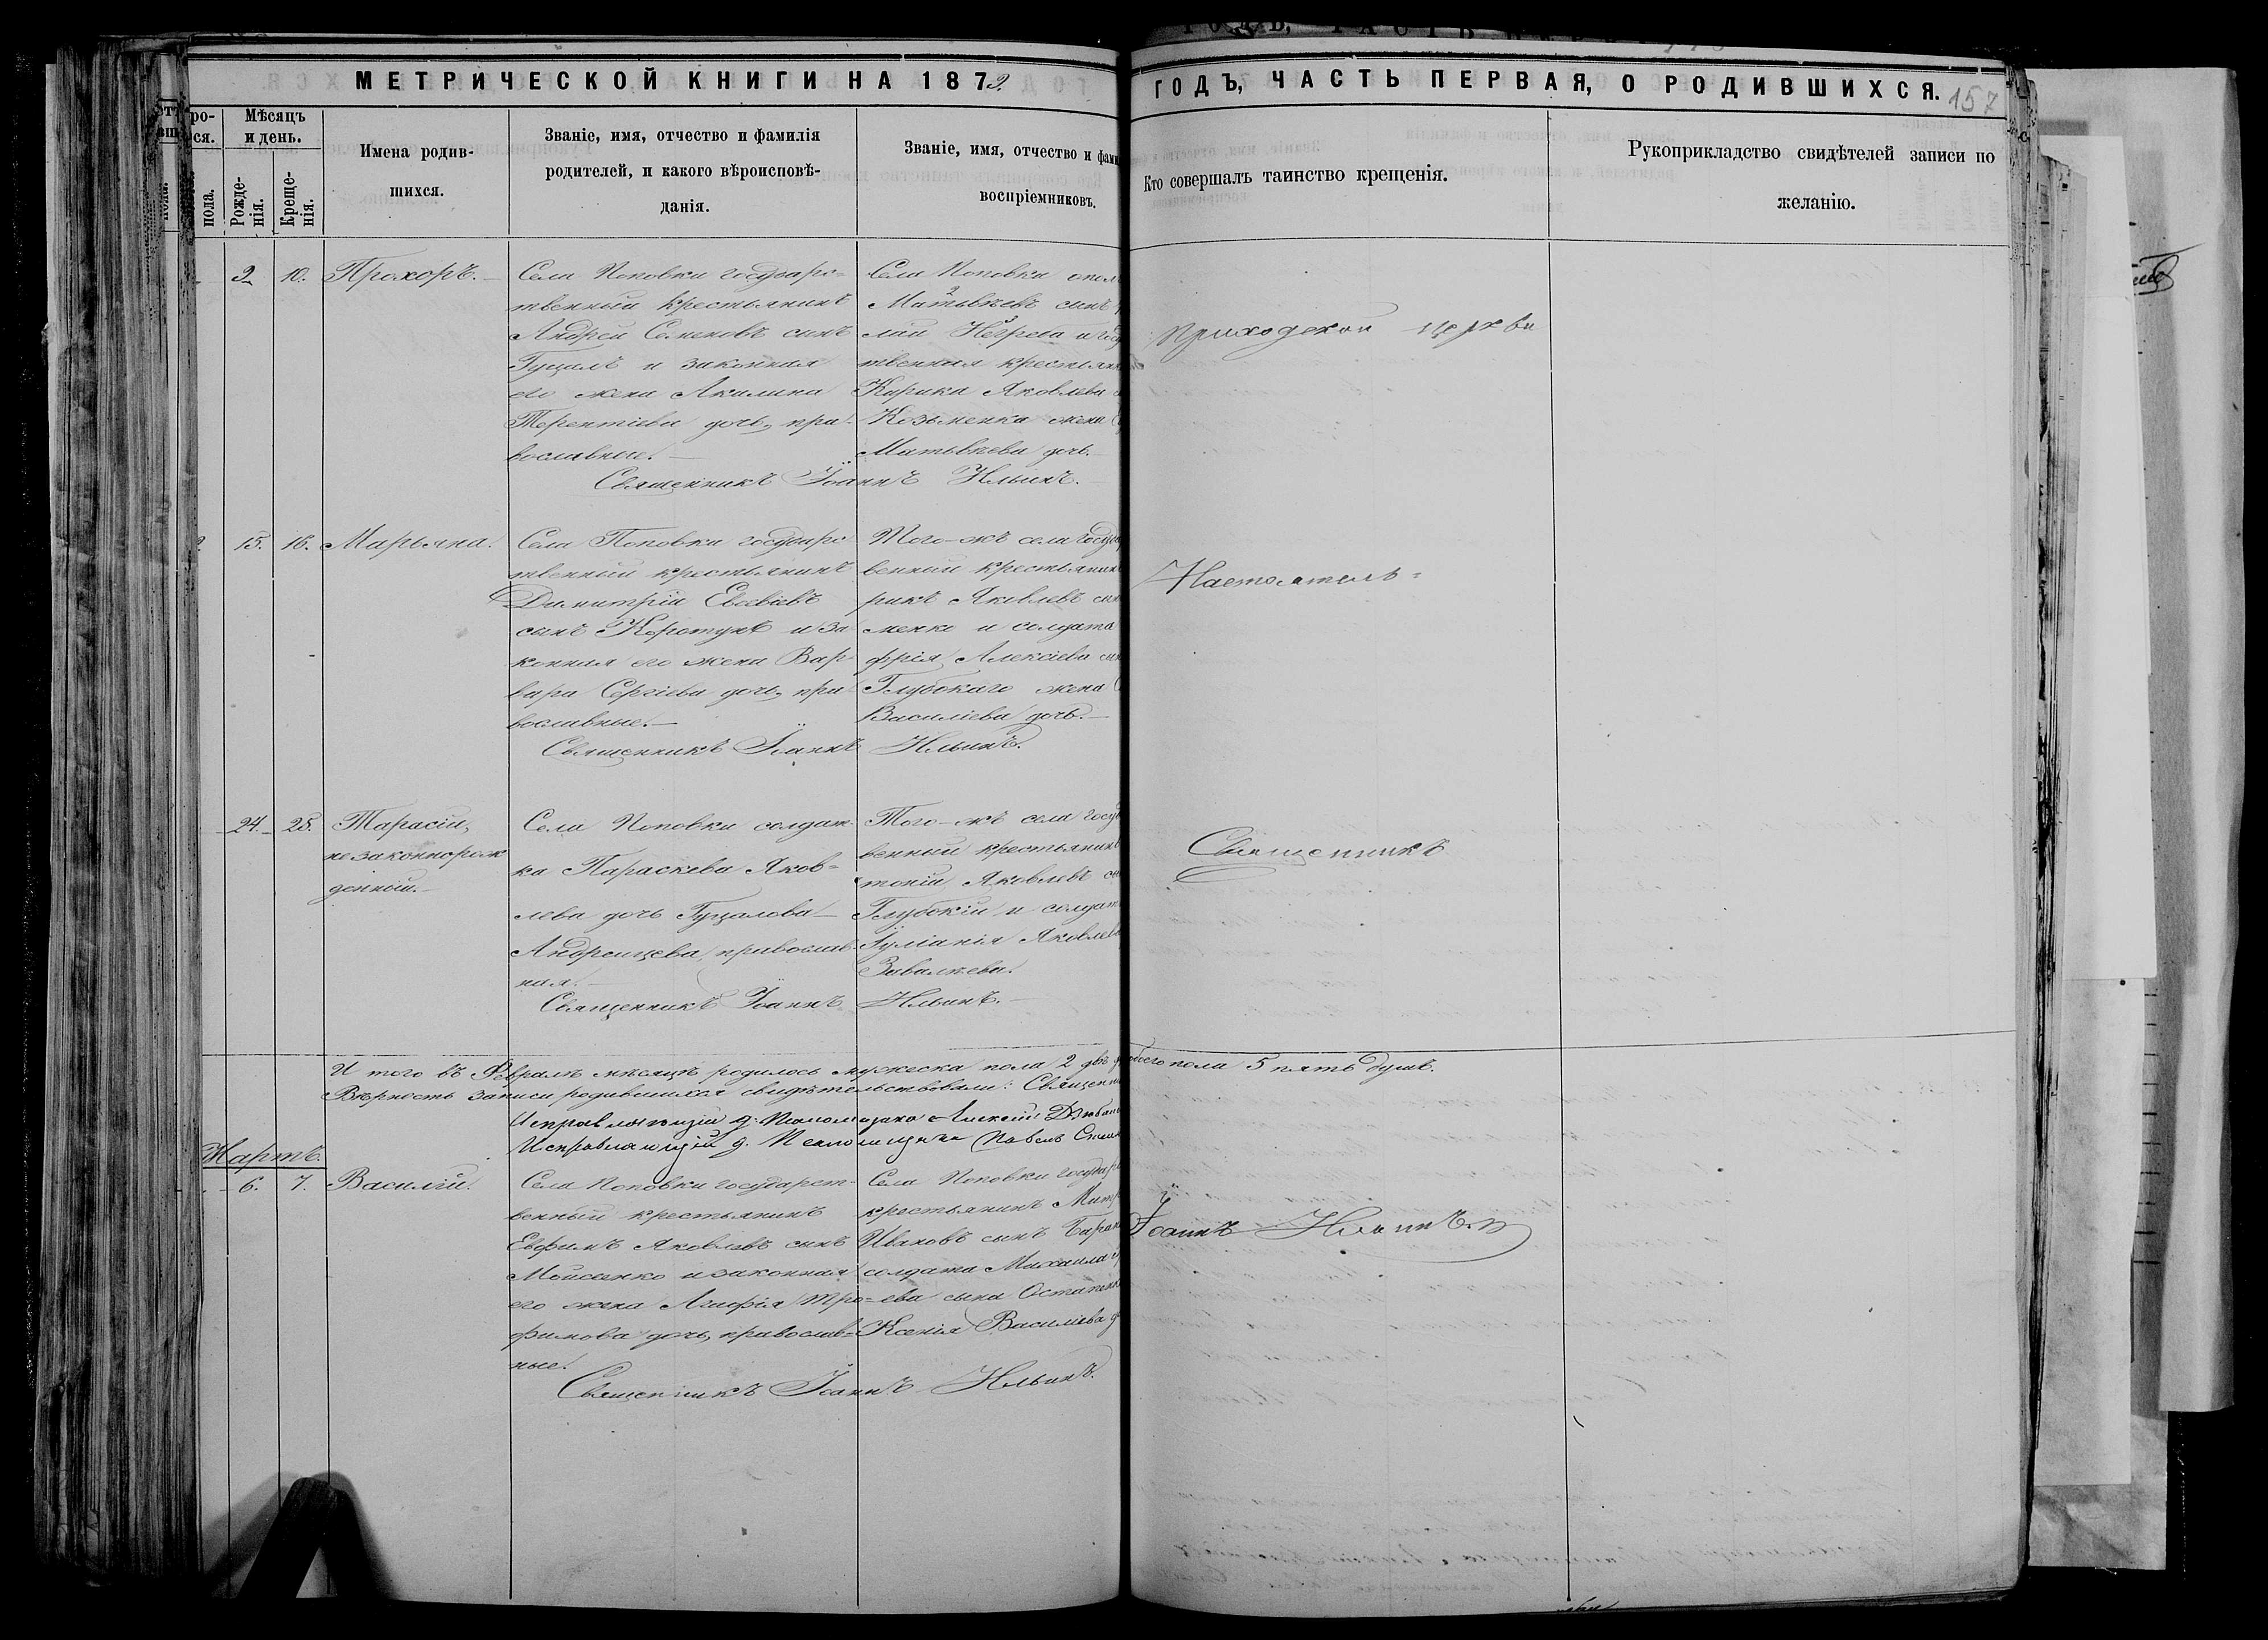 МЕТРИЧЕСКОЙ КНИГИ НА 187
ГОДЪ, ЧАСТЬ ПЕРВАЯ, О РОДИВШИХСЯ.
157
ро-
ся.
Мѣсяцъ
и день.
пола.
Рожде-
нія.
Креще-
нія.
Имена родив-
шихся.
Званіе, имя, отчество и фамилія
родителей, и какого вѣроисповѣ-
данія.
Званіе, имя, отчество и фами
воспріемниковъ.
Кто совершалъ таинство крещенія.
Рукоприкладство свидѣтелей записи по
желанію.
2 10. Прохоръ.
Села Поповки государс-
твенный крестьянинъ
Андрей Семеновъ сынъ
Гуцалъ и законная
его жена Акилина
Терентіева дочь, пра-
вославные.
Села Поповки
Матвѣевъ сынъ
лай Негрега и гос
твенная крестьян
Кирика Яковлева
Козьменка жена
Матвѣева дочь.
Священникъ Іоаннъ Ильинъ.
Приходской церкви
15. 16. Марьяна.
Села Поповки государс
твенный крестьянинъ
Димитрій Евсевіевъ
сынъ Коротунъ и за
конная его жена Вар
вара Сергіева дочь, пра
вославные.
Того-жъ села госуда
венный крестьянин
рикъ Яковлевъ сын
менко и солдата
фрія Алексіева сын
Глубокаго жена
Василіева дочь.
Священникъ Іоаннъ Ильинъ.
Настоятель
24. 25. Тарасій,
незаконнорож
денный.
Села Поповки солдат
ка Параскева Яков-
лева дочь Гуцалова
Андреицева, православ
ная.
Того-жъ села госуд
венный крестьянинъ
тоній Яковлевъ сы
Глубокій и солдат
Іуліанія Яковлев
Завалнева.
Священникъ Іоаннъ Ильинъ.
Священникъ
И того въ Февралѣ мѣсяцѣ родилось мужеска пола 2 двѣ обоего пола 5 пять душъ.
Вѣрность записи родившихся свидѣтельствовали: Священни
Исправляющій д. Псаломщика Алексій Дзюбан
Исправляющій д. Псаломщика Павелъ
Мартъ.
6. 7. Василій.
Села Поповки государст-
венный крестьянинъ
Евфимъ Яковлевъ сынъ
Мойсеенко и законная
его жена Агафія Тро-
фимова дочь, православ-
ные.
Села Поповки государ
крестьянинъ Митр
Ивановъ сынъ Баран
солдата Михаила
ева сына Остапенк
Ксенія Василіева д
Священникъ Іоаннъ Ильинъ.
Іоаннъ Ильинъ